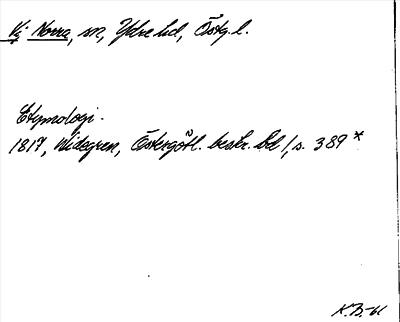 Vi Norra, sn, Ydre hd, Östg. l.
Etymologi.
1817, Widegren, Östergötl. beskr. bd 1, s. 389 *
K.B.-61